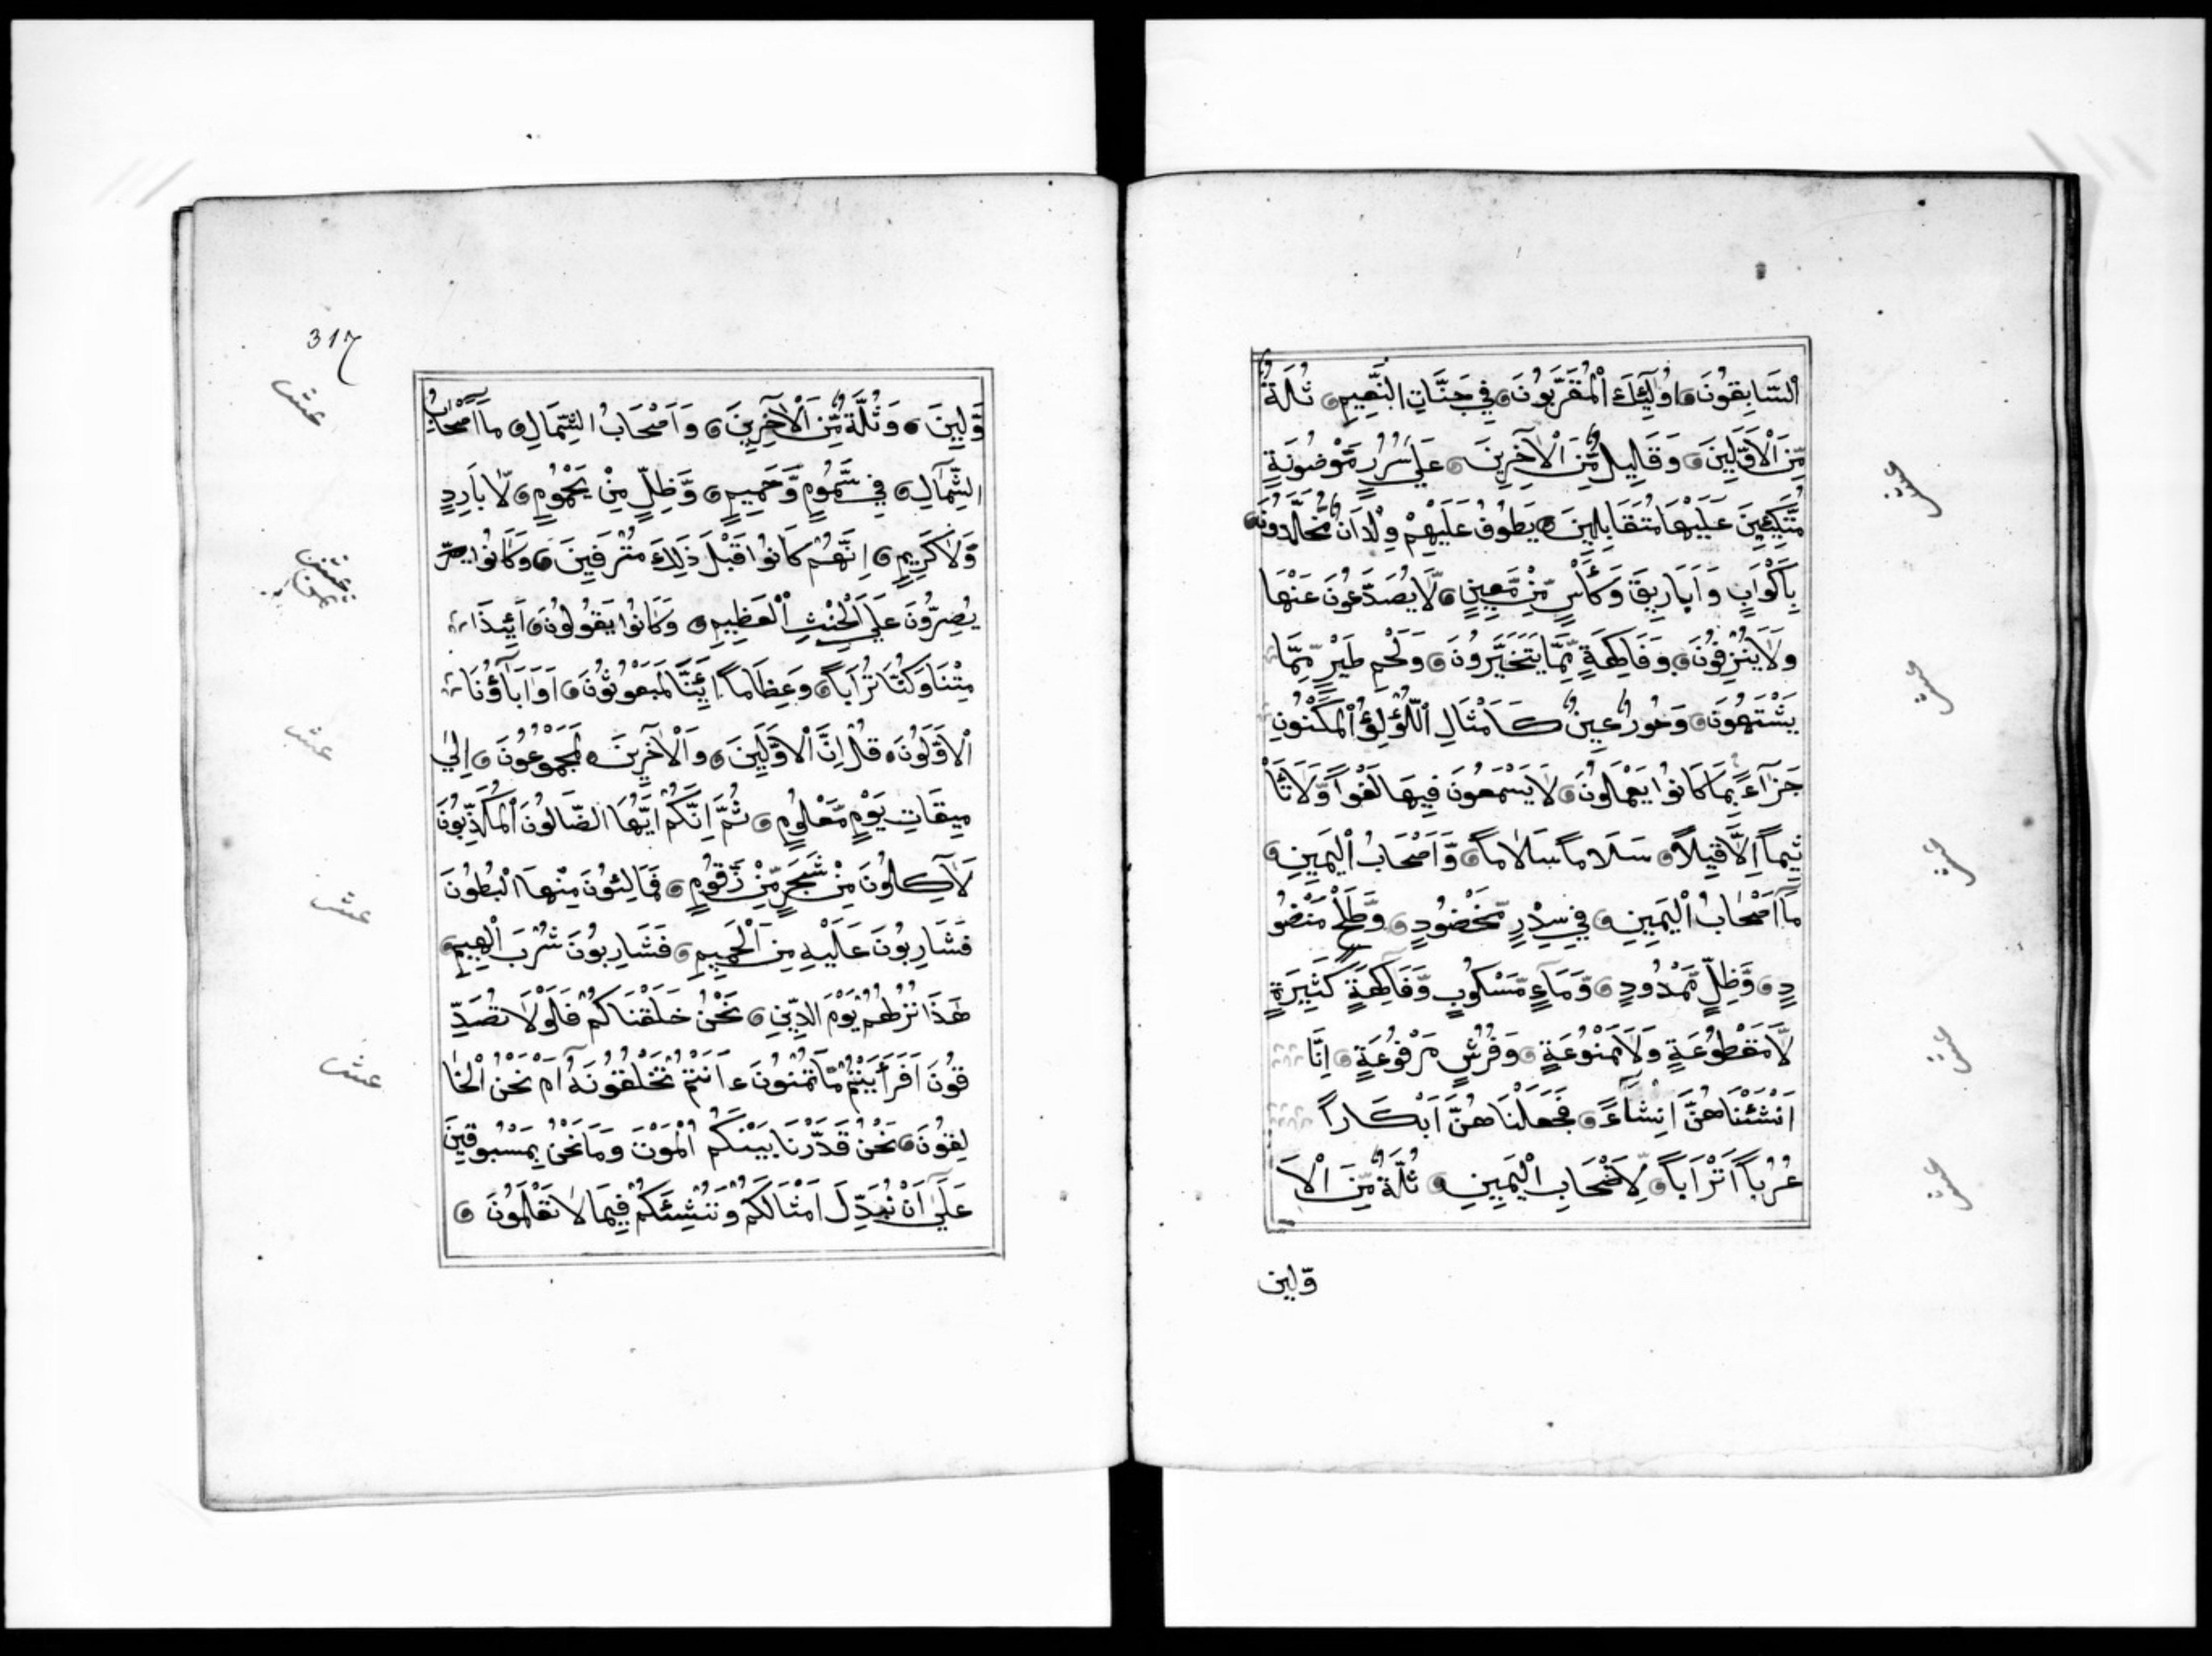 اَلسَّابِقُونَ اُولٰئِكَ اَلْمُقَرَّبُونَ فِي جَنَّاتِ النَّعِيمِ ثُلَّةٌ
مِّنَ الْاَوَّلِينَ وَقَلِيلٌ مِّنَ الْاٰخِرِينَ عَلٰي سُرُرٍ مَّوْضُونَةٍ
مُتَّكِئِينَ عَلَيْهَا مُتَقَابِلِينَ يَطُوفُ عَلَيْهِمْ وِلْدَانٌ مُّخَلَّدُونَ
بِاَكْوَابٍ وَاَبَارِيقَ وَكَأْسٍ مِّنْ مَّعِينٍ لَّا يُصَدَّعُونَ عَنْهَا
وَلَا يُنْزِفُونَ وَفَاكِهَةٍ مِّمَّا يَتَخَيَّرُونَ وَلَحْمِ طَيْرٍ مِّمَّا
يَشْتَهُونَ وَحُورٌ عِينٌ كَاَمْثَالِ اللُّؤْلُؤِ الْمَكْنُونِ
جَزَآءً بِمَا كَانُوا يَعْمَلُونَ لَا يَسْمَعُونَ فِيهَا لَغْواً وَّلَا تَأْ
ثِيماً اِلَّا قِيلاً سَلَاماً سَلَاماً وَّاَصْحَابُ الْيَمِينِ
مَا اَصْحَابُ الْيَمِينِ فِي سِدْرٍ مَّخْضُودٍ وَّطَلْحٍ مَنْضُو
دٍ وَّظِلٍّ مَّمْدُودٍ وَّمَآءٍ مَّسْكُوبٍ وَّفَاكِهَةٍ كَثِيرَةٍ
لَّا مَقْطُوعَةٍ وَلَا مَمْنُوعَةٍ وَفُرُشٍ مَرْفُوعَةٍ اِنَّا
اَنْشَئْنَاهُنَّ اِنشَآءً فَجَعَلْنَاهُنَّ اَبْكَاراً
عُرُباً اَتْرَاباً لِّاَصْحَابِ الْيَمِينِ ثُلَّةٌ مِّنَ الْاَ
وّلين
عشر
عشر
عشر
عشر
عشر
317
وَّلِينَ وَثُلَّةٌ مِّنَ الْاٰخِرِينَ وَاَصْحَابُ الشِّمَالِ مَا اَصْحَابُ
الشِّمَالِ فِي سَّمُومٍ وَّحَمِيمٍ وَّظِلٍّ مِنْ يَحْمُومٍ لَّا بَارِدٍ
وَّلَا كَرِيمٍ اِنَّهُمْ كَانُوا قَبْلَ ذَلِكَ مُتْرَفِينَ وَكَانُوا يصرّ
يُصِرُّونَ عَلَي الْحِنْثِ الْعَظِيمِ وَكَانُوا يَقُولُونَ اَئِذَا
مِتْنَا وَكُنَّا تُرَاباً وَعِظَاماً اَئِنَّا لَمَبْعُوثُونَ اَوَاٰبَاؤُنَا
الْاَوَّلُونَ قُلْ اِنَّ الْاَوَّلِينَ وَالْاٰخِرِينَ لَمَجْمُوعُونَ اِلٰي
مِيقَاتِ يَوْمٍ مَّعْلُومٍ ثُمَّ اِنَّكُمْ اَيُّهَا الضَّالُّونَ الْمُكَذِّبُونَ
لَاٰكِلُونَ مِنْ شَجَرٍ مِّنْ زَقُّومٍ فَمَالِئُونَ مِنْهَا الْبُطُونَ
فَشَارِبُونَ عَلَيْهِ مِنَ الْحَمِيمِ فَشَارِبُونَ شُرْبَ الْهِيمِ
هٰذَا نُزُلُهُمْ يَوْمَ الدِّينِ نَحْنُ خَلَقْنَاكُمْ فَلَوْلَا تُصَدِّ
قُونَ اَفَرَأَيْتُمْ مَّا تُمْنُونَ ءَاَنتُمْ تَخْلُقُونَهُ اَمْ نَحْنُ الْخَا
لِقُونَ نَحْنُ قَدَّرْنَا بَيْنَكُمُ الْمَوْتَ وَمَا نَحْنُ بِمَسْبُوقِينَ
عَلٰي اَنْ نُبَدِّلَ اَمْثَالَكُمْ وَنُنْشِئَكُمْ فِيمَا لَا تَعْلَمُونَ
عشر
عشر
عشر
عشر
عشر